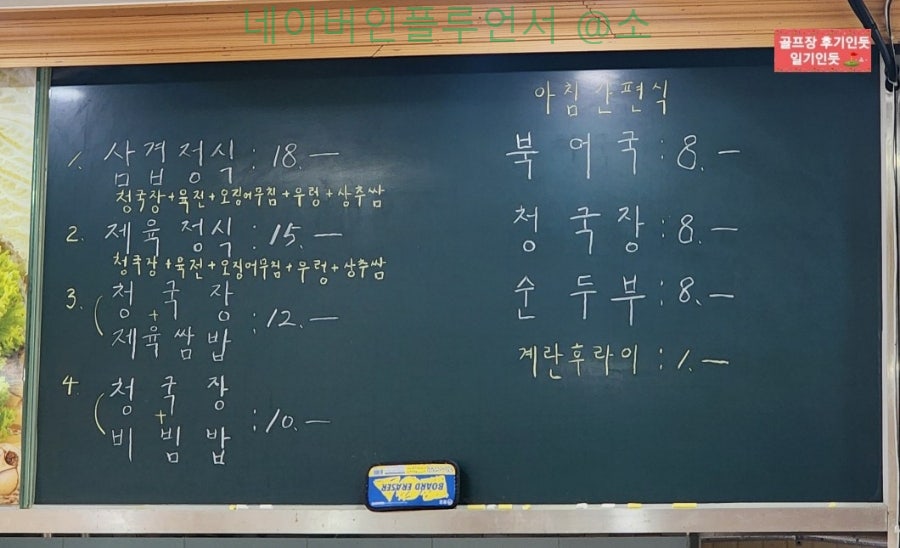 네이버인플루언서 @소
골프장 후기인듯
일기인듯
1. 삼겹정식 : 18.-
청국장+육전+오징어무침+우렁+상추쌈
2. 제육정식 : 15.-
청국장+육전+오징어무침+우렁+상추쌈
3. 청국장
+
제육쌈밥 : 12.-
4. 청국장
+
비빔밥 : 10.-
아침간편식
북어국 : 8.-
청국장 : 8.-
순두부 : 8.-
계란후라이 : 1.-
BOARD ERASER